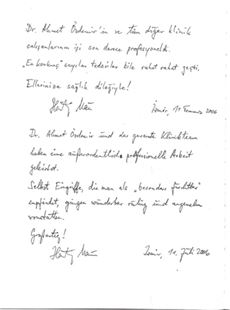 Dr. Ahmet Özdemir'in ve tüm diğer klinik
çalışanlarının işi son derece profesyoneldi.
„En korkunç" sayılan tedaviler bile rahat rahat geçti.
Ellerinize sağlık dileğiyle!
İzmir, 11 Temmuz 2006
Dr. Ahmet Özdemir und das gesamte Klinikteam
haben eine außerordentlich professionelle Arbeit
geleistet.
Selbst Eingriffe, die man als „besonders furchtbar"
empfindet, gingen wunderbar ruhig und angenehm
vonstatten.
Großartig!
Izmir, 11. Juli 2006